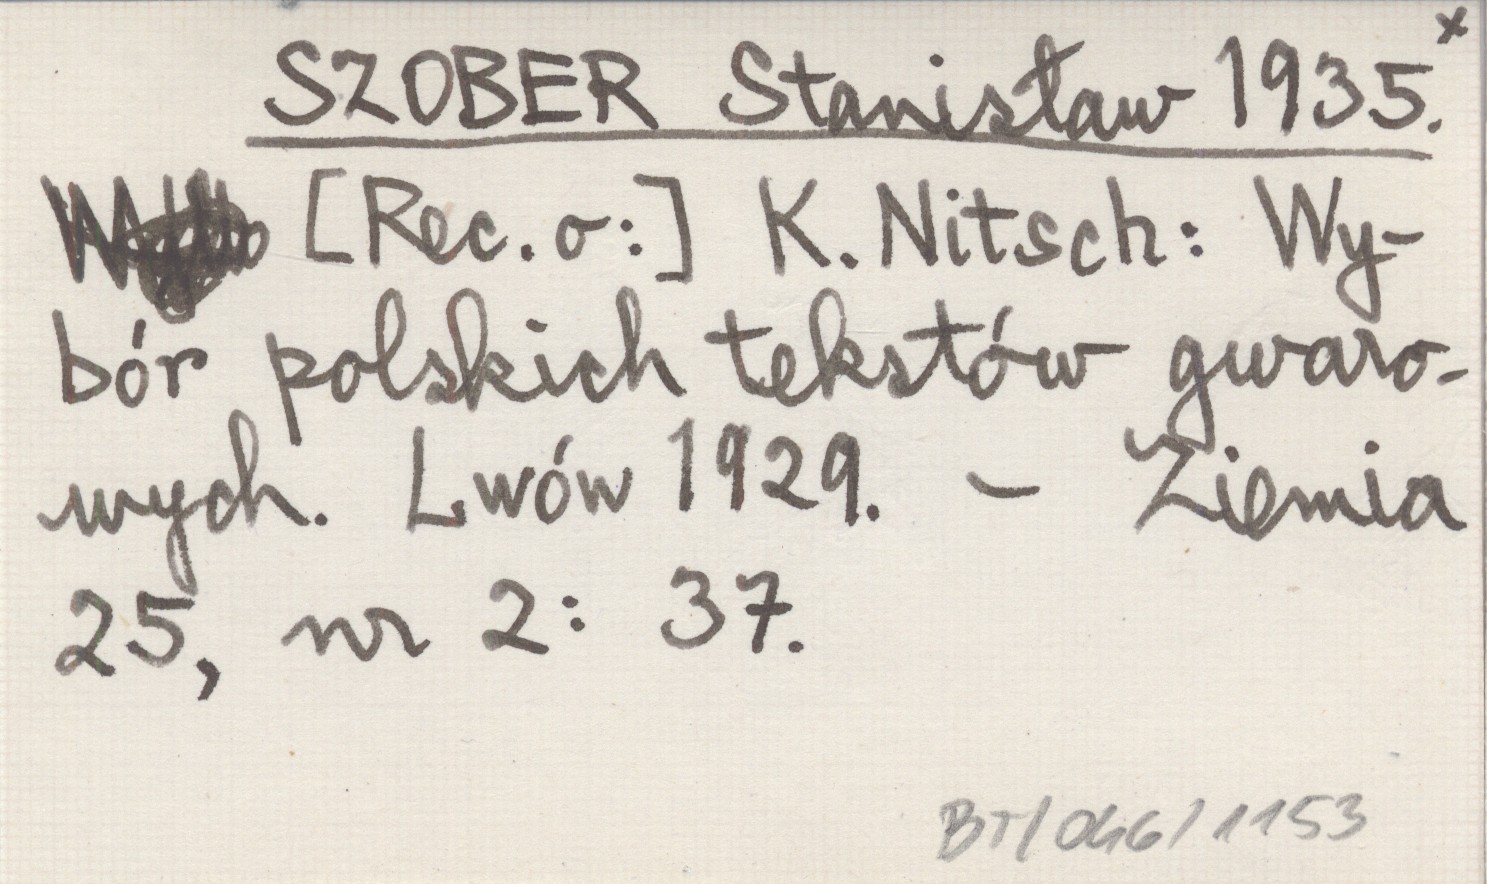 SZOBER Stanisław 1935.x
[Rec. o:] K. Nitsch: Wy-
bór polskich tekstów gwaro-
wych. Lwów 1929. – Ziemia
25, nr 2: 37.
BT/046/1153